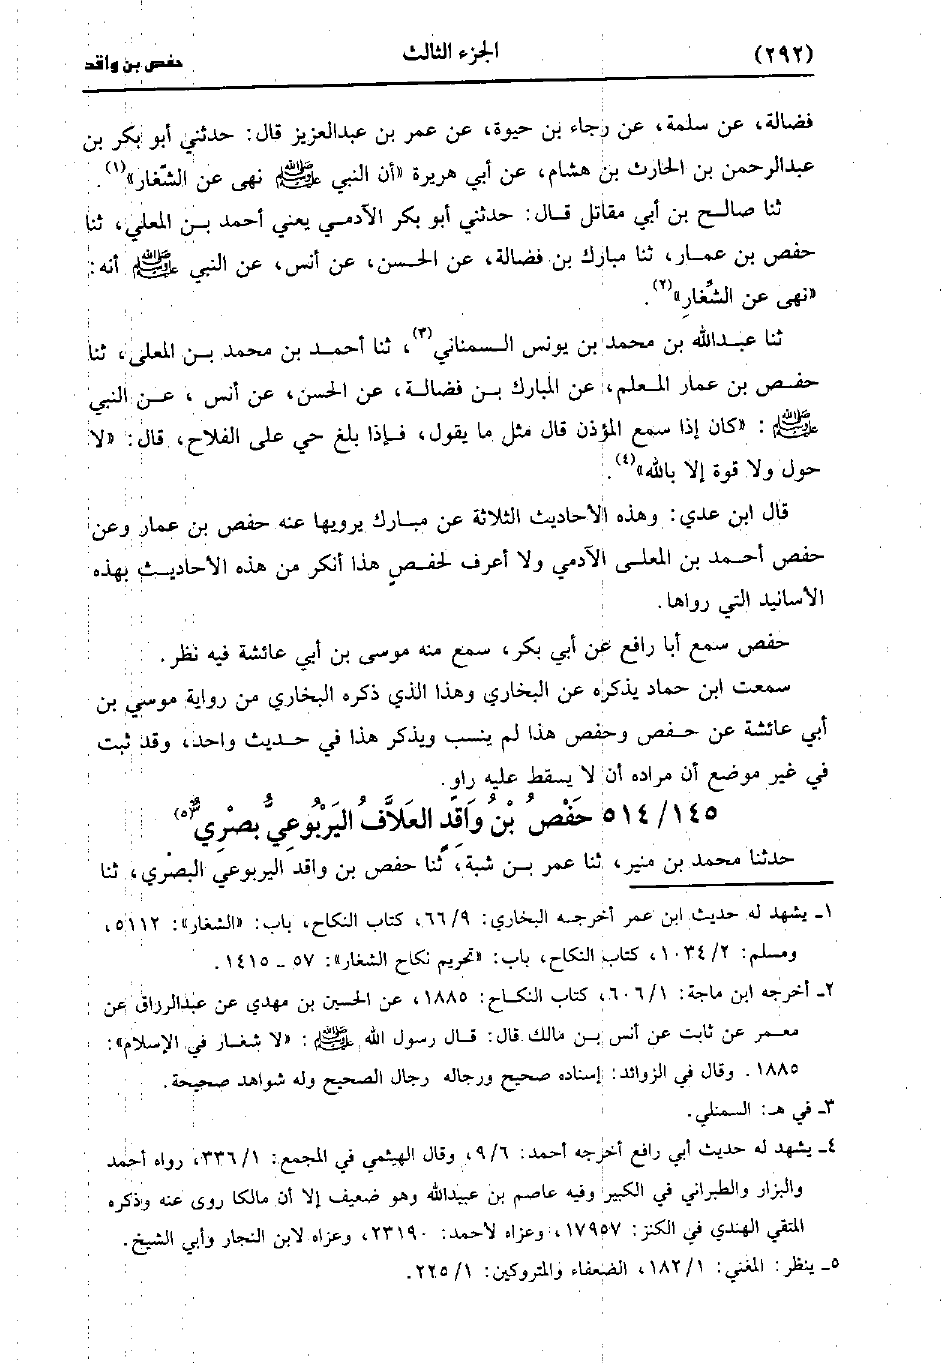 (٢٩٢) الجزء الثالث حفص بن واقد
فضالة، عن سلمة، عن رجاء بن حيوة، عن عمر بن عبدالعزيز قال: حدثني أبو بكر بن
عبدالرحمن بن الحارث بن هشام، عن أبي هريرة «أن النبي ﷺ نهى عن الشّغار»(١).
ثنا صالح بن أبي مقاتل قال: حدثني أبو بكر الآدمي يعني أحمد بن المعلي، ثنا
حفص بن عمار، ثنا مبارك بن فضالة، عن الحسن، عن أنس، عن النبي ﷺ أنه:
«نهى عن الشِّغارِ»(٢).
ثنا عبدالله بن محمد بن يونس السمناني(٣)، ثنا أحمد بن محمد بن المعلى، ثنا
حفص بن عمار المعلم، عن المبارك بن فضالة، عن الحسن، عن أنس، عن النبي
ﷺ: «كان إذا سمع المؤذن قال مثل ما يقول، فإذا بلغ حي على الفلاح، قال: «لا
حول ولا قوة إلا بالله»(٤).
قال ابن عدي: وهذه الأحاديث الثلاثة عن مبارك يرويها عنه حفص بن عمار وعن
حفص أحمد بن المعلى الآدمي ولا أعرف لحفص هذا أنكر من هذه الأحاديث بهذه
الأسانيد التي رواها.
حفص سمع أبا رافع عن أبي بكر، سمع منه موسى بن أبي عائشة فيه نظر.
سمعت ابن حماد يذكره عن البخاري وهذا الذي ذكره البخاري من رواية موسي بن
أبي عائشة عن حفص وحفص هذا لم ينسب ويذكر هذا في حديث واحد، وقد ثبت
في غير موضع أن مراده أن لا يسقط عليه راو.
٥١٤/١٤٥ حَفْصُ بْنُ وَاقَدٍ العَلاَّفُ اليَرْبُوعِي بصْرِيٌّ(٥)
حدثنا محمد بن منير، ثنا عمر بن شبة، ثنا حفص بن واقد اليربوعي البصْري، ثنا
١ـ يشهد له حديث ابن عمر أخرجه البخاري: ٦٦/٩، كتاب النكاح، باب: «الشغار»: ٥١١٢،
ومسلم: ١٠٣٤/٢، كتاب النكاح، باب: «تحريم نكاح الشغار»: ٥٧ ـ ١٤١٥.
٢ـ أخرجه ابن ماجة: ٦٠٦/١، كتاب النكاح: ١٨٨٥، عن الحسين بن مهدي عن عبدالرزاق عن
معمر عن ثابت عن أنس بن مالك قال: قال رسول الله ﷺ: «لا شغار في الإسلام»:
١٨٨٥. وقال في الزوائد: إسناده صحيح ورجاله رجال الصحيح وله شواهد صحيحة.
٣ـ في هـ: السمنلي.
٤ـ يشهد له حديث أبي رافع أخرجه أحمد: ٩/٦، وقال الهيثمي في المجمع: ٣٣٦/١، رواه أحمد
والبزار والطبراني في الكبير وفيه عاصم بن عبيدالله وهو ضعيف إلا أن مالكا روى عنه وذكره
المتقي الهندي في الكنز: ١٧٩٥٧، وعزاه لاحمد: ٢٣١٩٠، وعزاه لابن النجار وأبي الشيخ.
٥ـ ينظر: المغني: ١٨٢/١، الضعفاء والمتروكين: ٢٢٥/١.